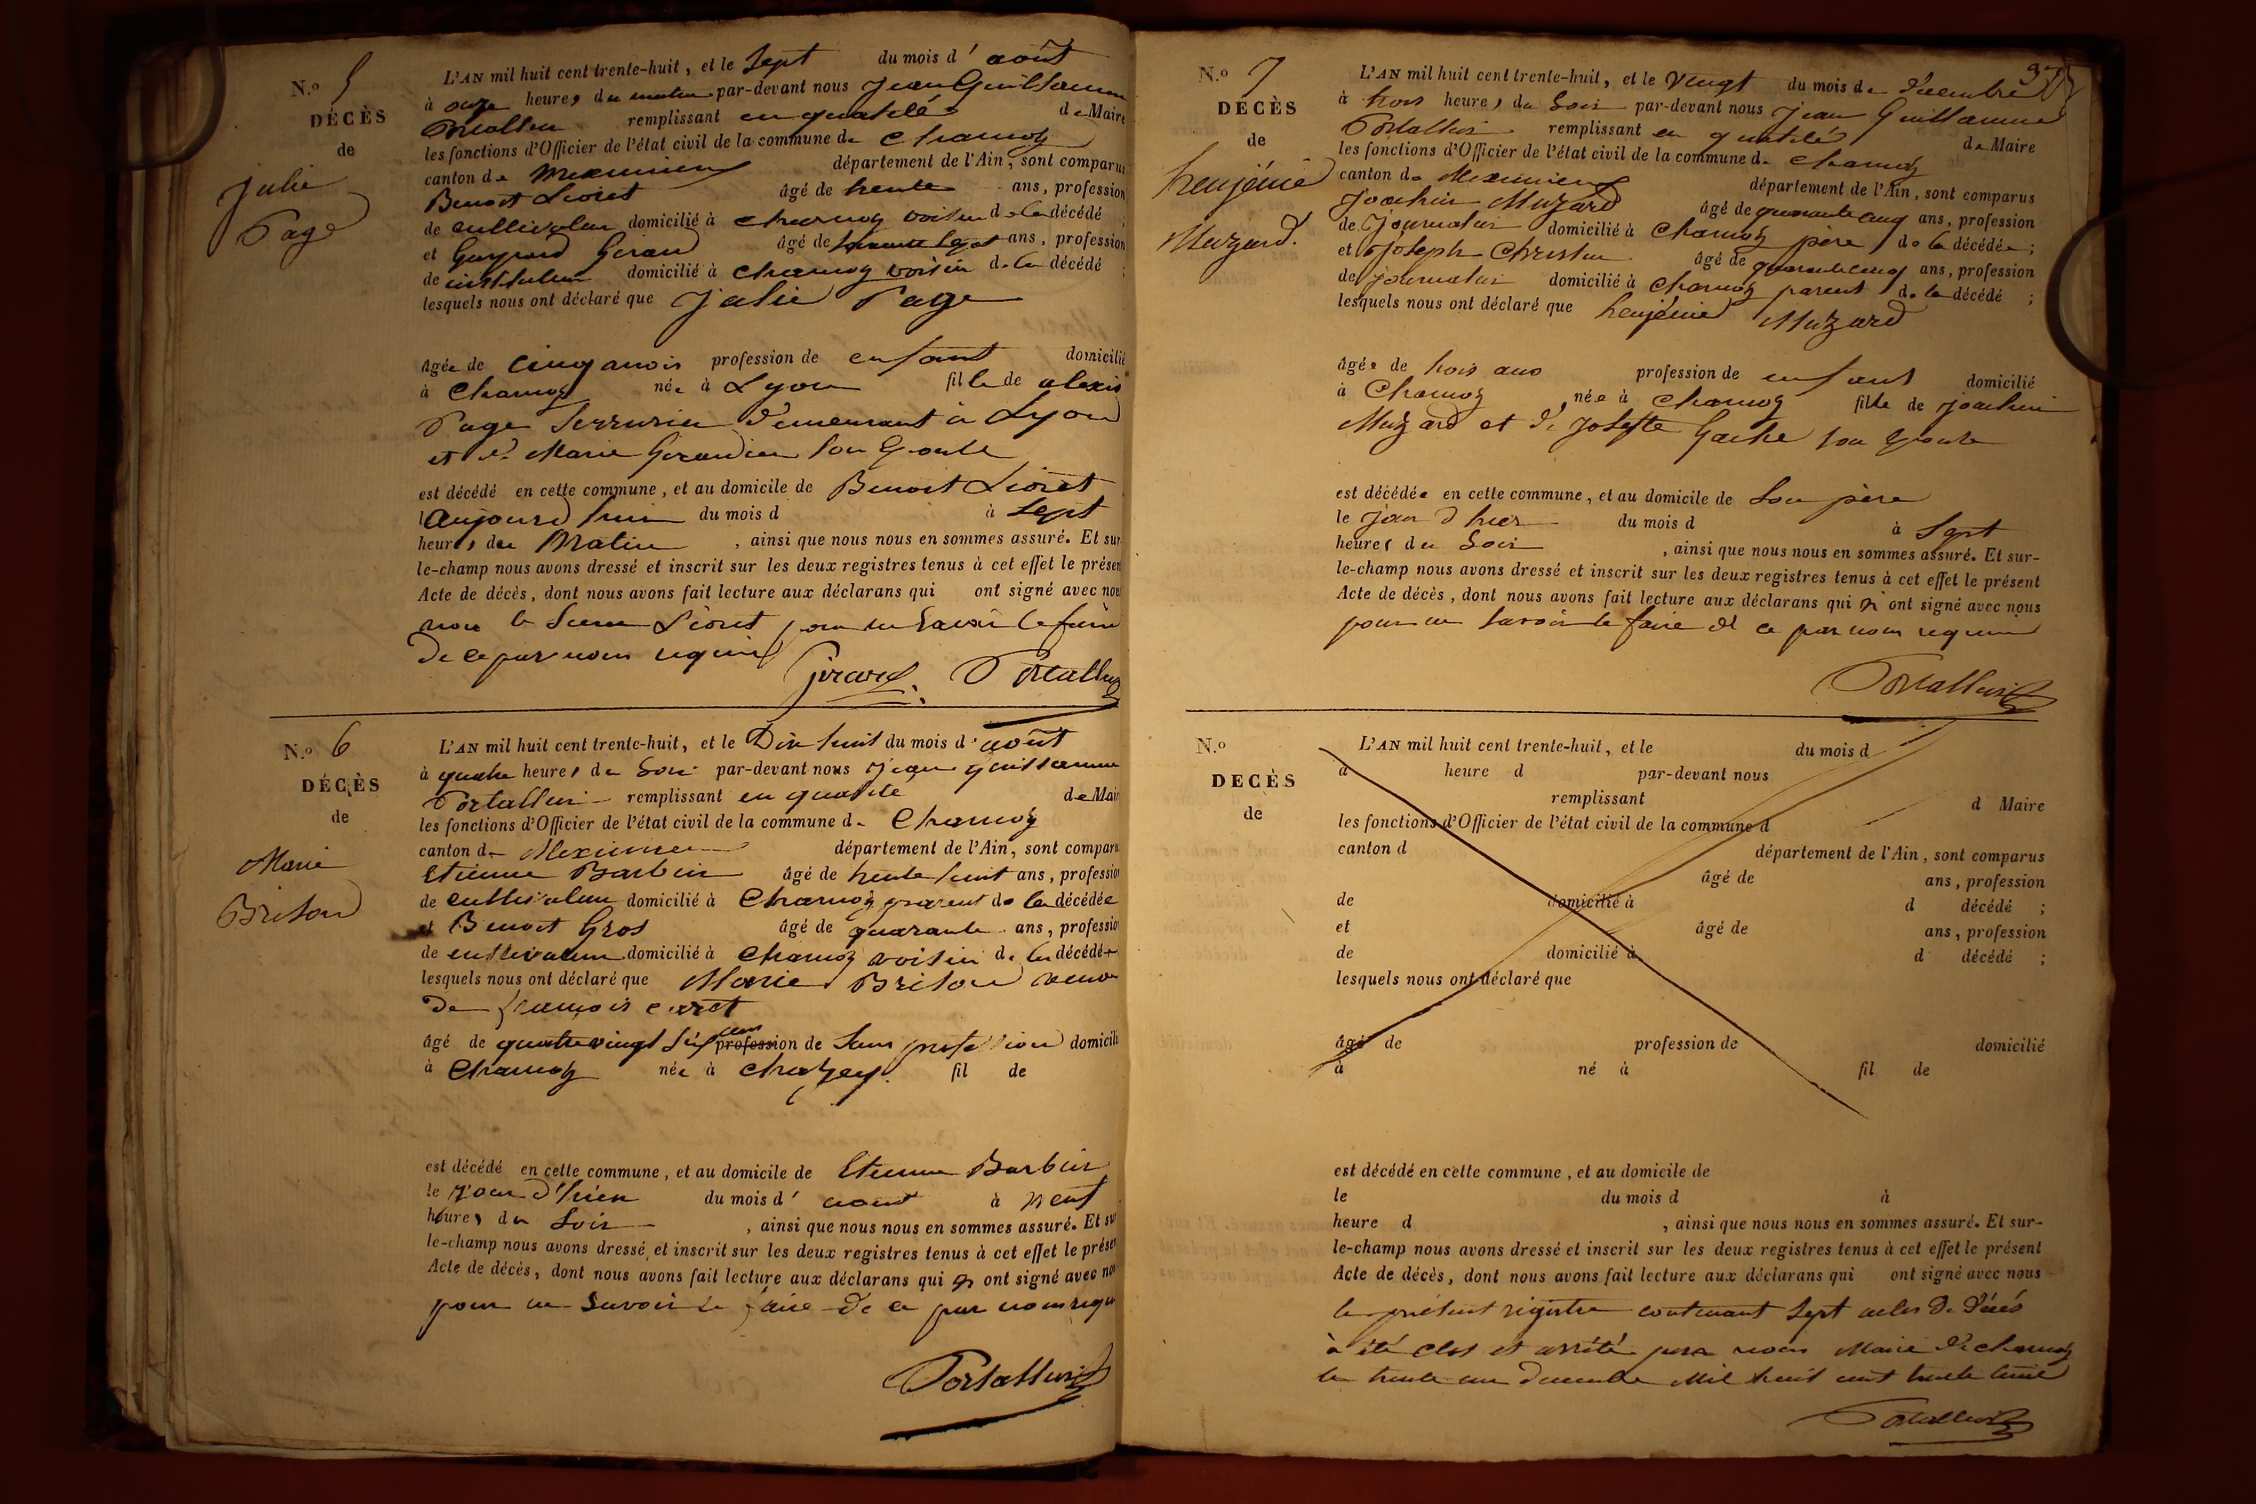 N.º 5
DÉCÈS
de
Julie
Page
L'AN mil huit cent trente-huit, et le Sept du mois d' août
à onze heures du matin par-devant nous Jean Guillaume
Portallier remplissant en qualité de Maire
les fonctions d'Officier de l'état civil de la commune de Charnoz
canton de Meximieux département de l'Ain, sont comparus
Benoit Lioret âgé de trente ans, profession
de cultivateur domicilié à Charnoz voisin de la décédé ;
et Girard âgé de ans, profession
de instituteur domicilié à Charnoz voisin de la décédé ;
lesquels nous ont déclaré que Julie Page
âgée de cinq mois profession de enfant domicilié
à Charnoz née à Lyon fille de alexis
Page Serrurier demeurant à Lyon
et de Marie son Epouse
est décédé en cette commune, et au domicile de Benoit Lioret
l'aujourd'hui du mois d à Sept
heures du Matin , ainsi que nous nous en sommes assuré. Et sur-
le-champ nous avons dressé et inscrit sur les deux registres tenus à cet effet le présen
Acte de décès, dont nous avons fait lecture aux déclarans qui ont signé avec nou
non le Sieur Lioret pour ne Savoir le faire
De ce par nous requis
Girard. Portallier
N.º 6
DÉCÈS
de
Marie
Brison
L'AN mil huit cent trente-huit, et le Dix huit du mois d' août
à quatre heures du Soir par-devant nous Jean Guillaume
Portallier remplissant en qualité de Mair
les fonctions d'Officier de l'état civil de la commune de Charnoz
canton de Meximieux département de l'Ain, sont comparu
Etienne Barbier âgé de trente huit ans, profession
de cultivateur domicilié à Charnoz parent de la décédée
et Benoit Gros âgé de quarante ans, profession
de cultivateur domicilié à Charnoz voisin de la décédée
lesquels nous ont déclaré que Marie Brison veuve
de françois
âgé de quatre vingt Six ans profession de Sans profession domicili
à Charnoz née à Chazey. fil de
est décédé en cette commune, et au domicile de Etienne Barbier
le jour d'hier du mois d' aout à neuf
heures du Soir , ainsi que nous nous en sommes assuré. Et sur
le-champ nous avons dressé et inscrit sur les deux registres tenus à cet effet le présen
Acte de décès, dont nous avons fait lecture aux déclarans qui n' ont signé avec nou
pour ne Savoir le faire de ce par nous requi
Portallier
37
N.º 7
DÉCÈS
de
heujénie
Muzard.
L'AN mil huit cent trente-huit, et le vingt du mois de décembre
à trois heures du Soir par-devant nous Jean Guillaume
Portallier remplissant en qualité de Maire
les fonctions d'Officier de l'état civil de la commune de Charnoz
canton de Meximieux département de l'Ain, sont comparus
Joachim Muzard âgé de quarante cinq ans, profession
de Journalier domicilié à Charnoz père de la décédée ;
et Joseph Christin âgé de quarante cinq ans, profession
de journalier domicilié à Charnoz parent de la décédé ;
lesquels nous ont déclaré que heujénie Muzard
âgée de trois ans profession de enfant domicilié
à Charnoz née à Charnoz fille de joachim
Muzard et de Josette Gache son Epouse
est décédée en cette commune, et au domicile de Son père
le jour d'hier du mois d à Sept
heures du Soir , ainsi que nous nous en sommes assuré. Et sur-
le-champ nous avons dressé et inscrit sur les deux registres tenus à cet effet le présent
Acte de décès, dont nous avons fait lecture aux déclarans qui n' ont signé avec nous
pour ne Savoir le faire de ce par nous requis
Portallier
N.º
DÉCÈS
de
L'AN mil huit cent trente-huit, et le du mois d
à heure d par-devant nous
remplissant d Maire
les fonctions d'Officier de l'état civil de la commune d
canton d département de l'Ain, sont comparus
âgé de ans, profession
de domicilié à d décédé ;
et âgé de ans, profession
de domicilié à d décédé ;
lesquels nous ont déclaré que
âgé de profession de domicilié
à né à fil de
est décédé en cette commune, et au domicile de
le du mois d à
heure d , ainsi que nous nous en sommes assuré. Et sur-
le-champ nous avons dressé et inscrit sur les deux registres tenus à cet effet le présent
Acte de décès, dont nous avons fait lecture aux déclarans qui ont signé avec nous
le présent registre contenant Sept actes de décés
à été clos et arrêté par nous Maire de Charnoz
le trente un decembre Mil huit cent trente huit
Portallier